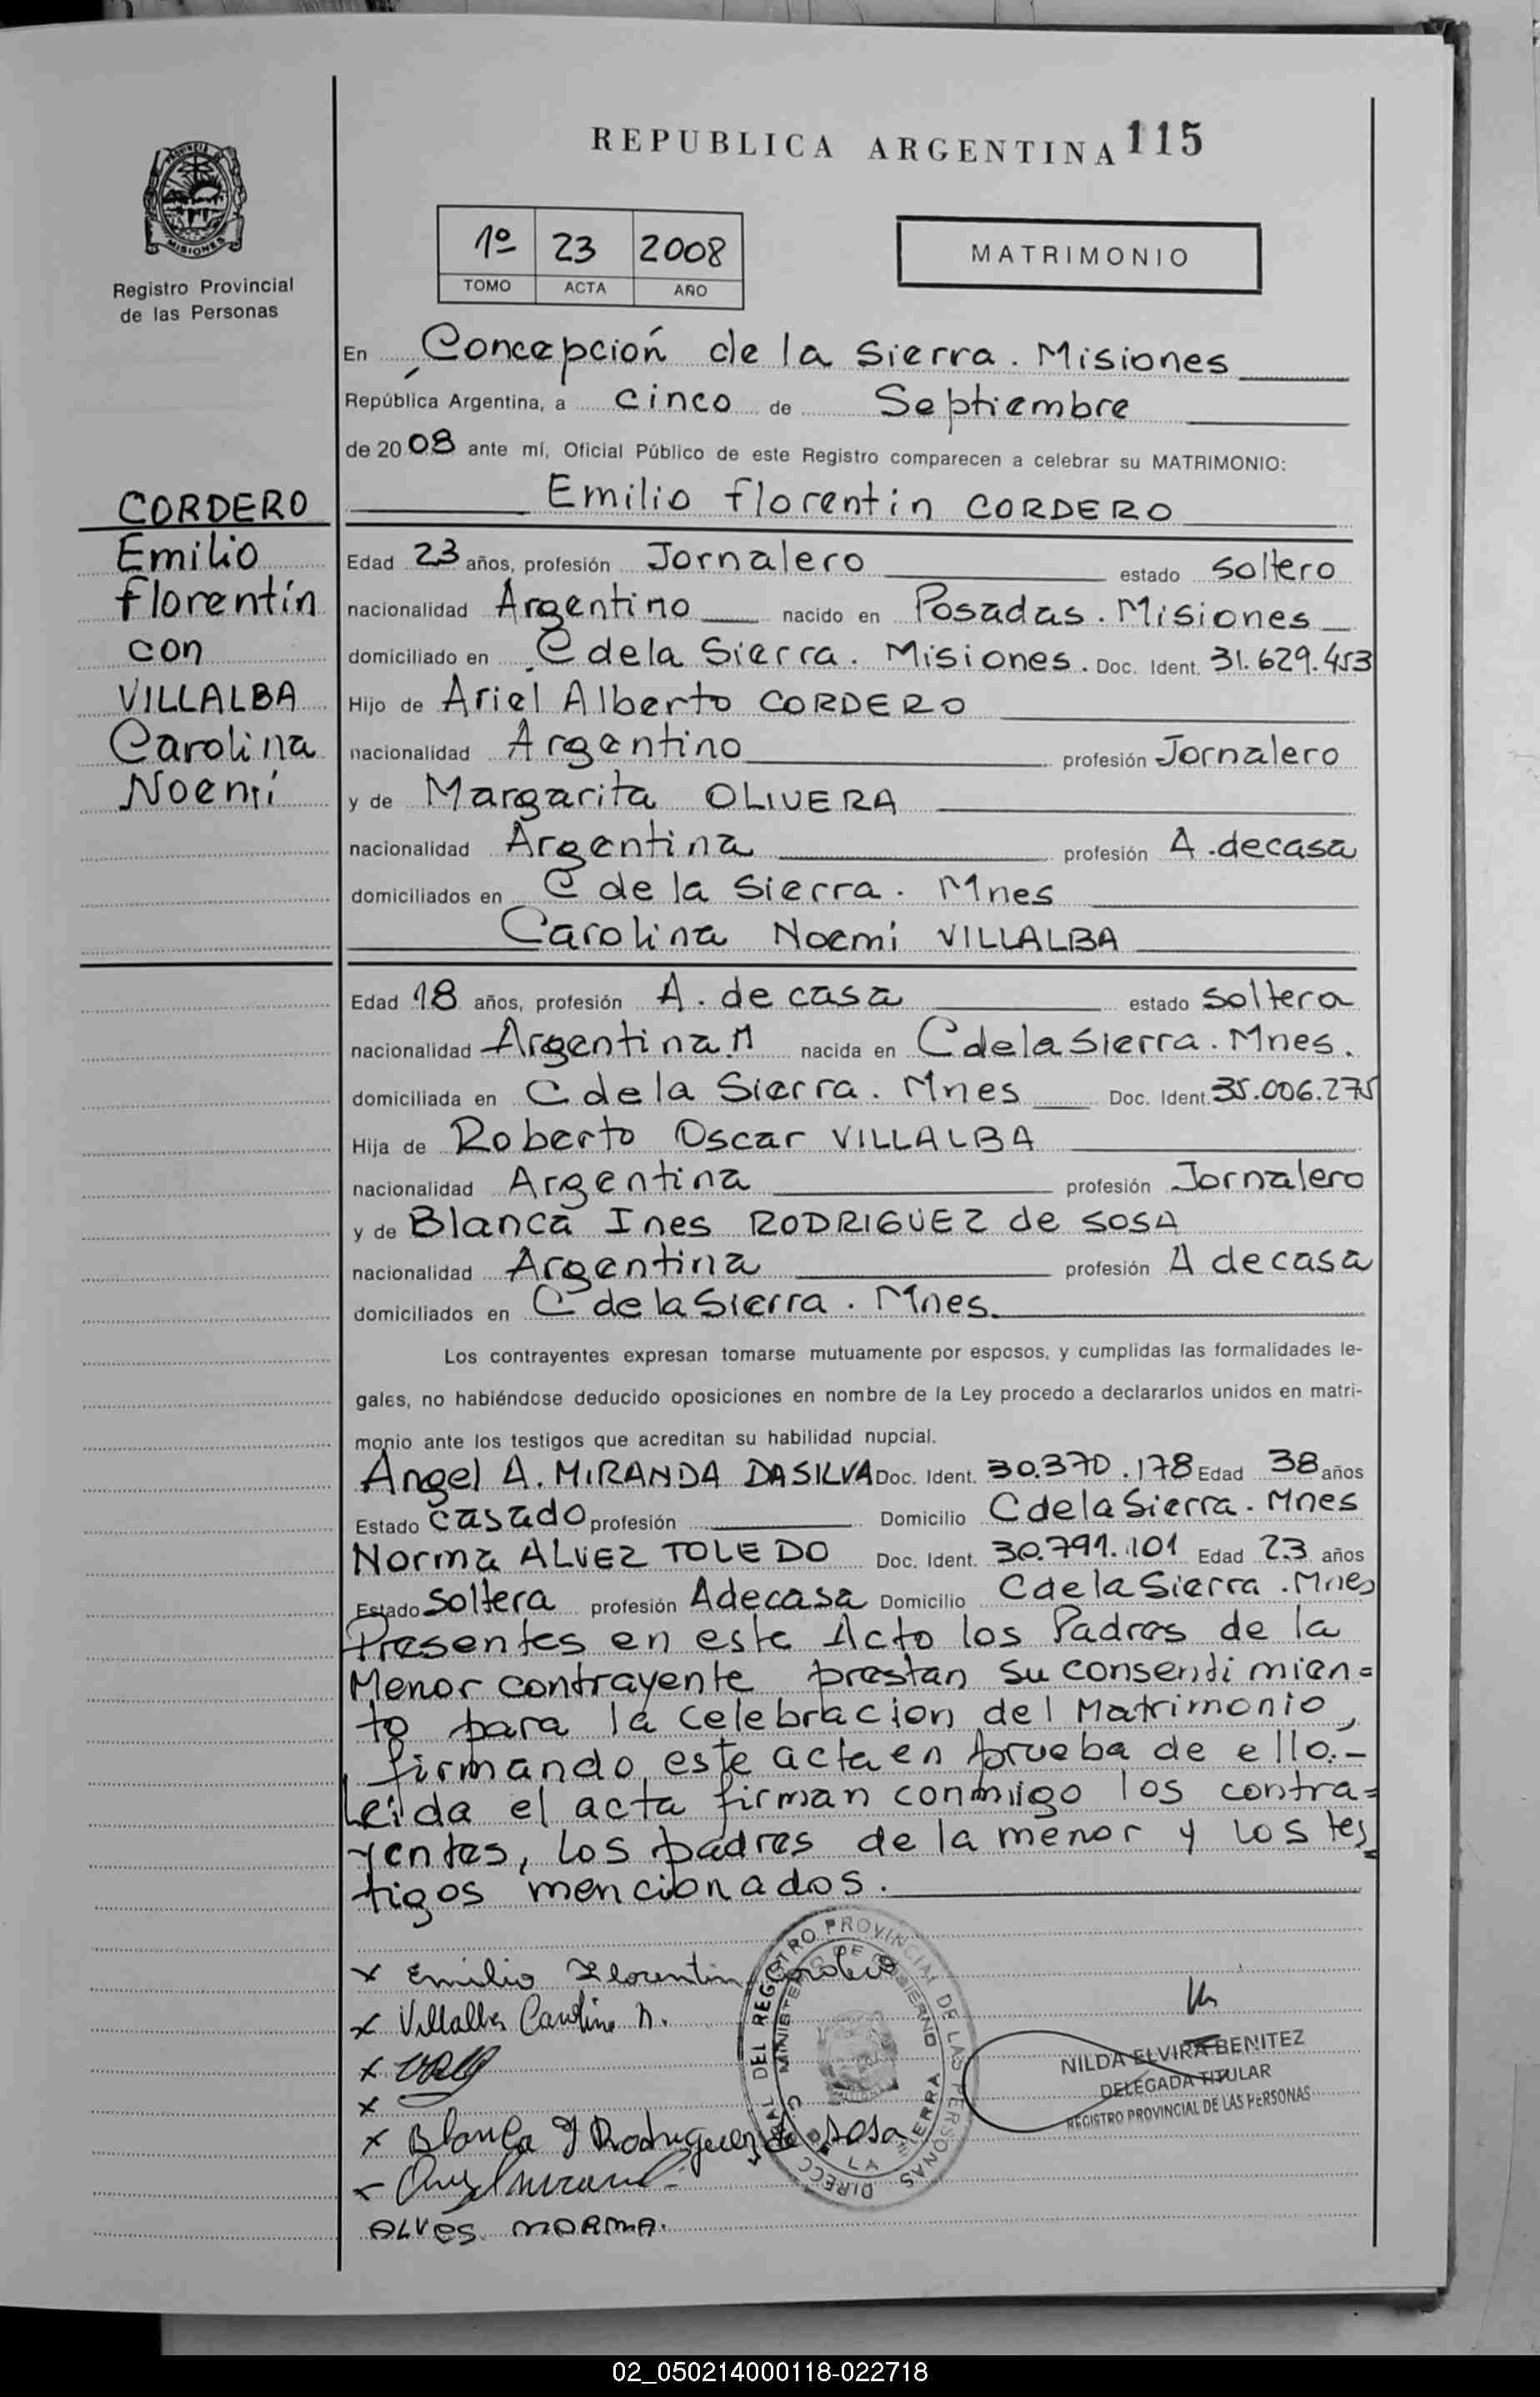 REPUBLICA ARGENTINA 115
PROVINCIA DE
MISIONES
Registro Provincial
de las Personas
1º 23 2008
TOMO ACTA AÑO
MATRIMONIO
En Concepción de la Sierra. Misiones
República Argentina, a cinco de Septiembre
de 2008 ante mí, Oficial Público de este Registro comparecen a celebrar su MATRIMONIO:
Emilio florentin CORDERO
CORDERO
Emilio
florentín
con
VILLALBA
Carolina
Noemí
Edad 23 años, profesión Jornalero estado soltero
nacionalidad Argentino nacido en Posadas. Misiones
domiciliado en C dela Sierra. Misiones. Doc. Ident. 31.629.453
Hijo de Ariel Alberto CORDERO
nacionalidad Argentino profesión Jornalero
y de Margarita OLIVERA
nacionalidad Argentina profesión A. decasa
domiciliados en C de la Sierra. Mnes
Carolina Noemí VILLALBA
Edad 18 años, profesión A. de casa estado soltera
nacionalidad Argentina.M nacida en C dela Sierra. Mnes.
domiciliada en C de la Sierra. Mnes Doc. Ident. 35.006.275
Hija de Roberto Oscar VILLALBA
nacionalidad Argentina profesión Jornalero
y de Blanca Ines RODRIGUEZ de SOSA
nacionalidad Argentina profesión A decasa
domiciliados en C de la Sierra. Mnes.
Los contrayentes expresan tomarse mutuamente por esposos, y cumplidas las formalidades le-
gales, no habiéndose deducido oposiciones en nombre de la Ley procedo a declararlos unidos en matri-
monio ante los testigos que acreditan su habilidad nupcial.
Angel A. MIRANDA DASILVA Doc. Ident. 30.370.178 Edad 38 años
Estado casado profesión Domicilio C dela Sierra. Mnes
Norma ALVEZ TOLEDO Doc. Ident. 30.791.101 Edad 23 años
Estado Soltera profesión Adecasa Domicilio C de la Sierra. Mnes
Presentes en este Acto los Padres de la
Menor contrayente prestan su consentimien=
to para la celebracion del Matrimonio,
firmando este acta en prueba de ello.-
Leida el acta firman conmigo los contra=
yentes, los padres de la menor y los tes
tigos mencionados.
x Emilio Florentin Cordero
x Villalba Carolina N.
x
x
x Blanca I Rodriguez de sosa
ALVES NORMA.
DIRECC GRAL DEL REGISTRO PROVINCIAL DE LAS PERSONAS
MINISTERIO DE GOBIERNO
C DE LA SIERRA
NILDA ELVIRA BENITEZ
DELEGADA TITULAR
REGISTRO PROVINCIAL DE LAS PERSONAS
02_050214000118-022718